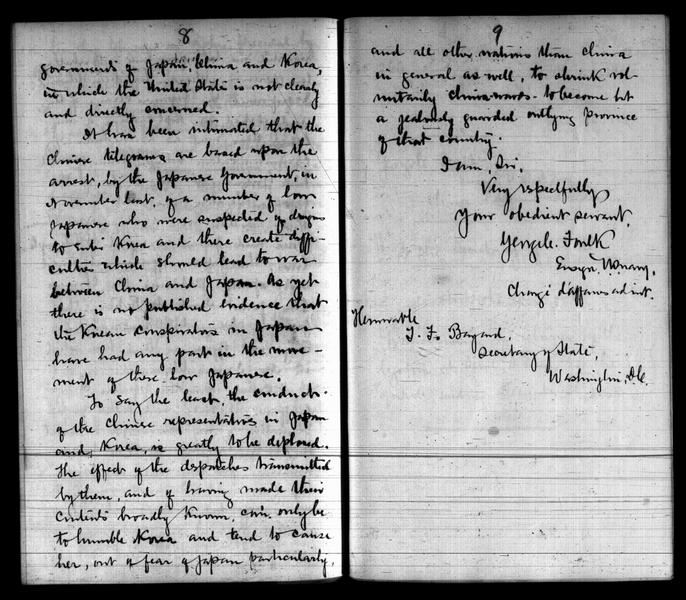 8
governments of Japan, China and Korea,
in which the United State is not clearly
and directly concerned.
It has been intimated that the
Chinese telegrams are based upon the
arrest, by the Japanese Government, in
November last, of a number of low
Japanese who were suspected of designs
to enter Korea and there create diffi-
culties which should lead to war
between China and Japan. As yet
there is no published evidence that
the Korean conspirators in Japan
have had any part in the move-
ment of these low Japanese.
To say the least, the conduct
of the Chinese representatives in Japan
and Korea, is greatly to be deplored.
The effect of the dispatches transmitted
by them, and of having made their
contents broadly known, can only be
to humble Korea and tend to cause
her, out of fear of Japan particularly,
9
and all other nations than China
in general as well, to shrink vol-
untarily China-wards to become but
a jealously guarded outlying province
of that country.
I am, Sir,
Very respectfully
Your obedient servant,
George C. Foulk
Ensign, U.S. Navy,
Chargé d'affaires ad int.
Honorable
T. F. Bayard,
Secretary of State,
Washington, D.C.